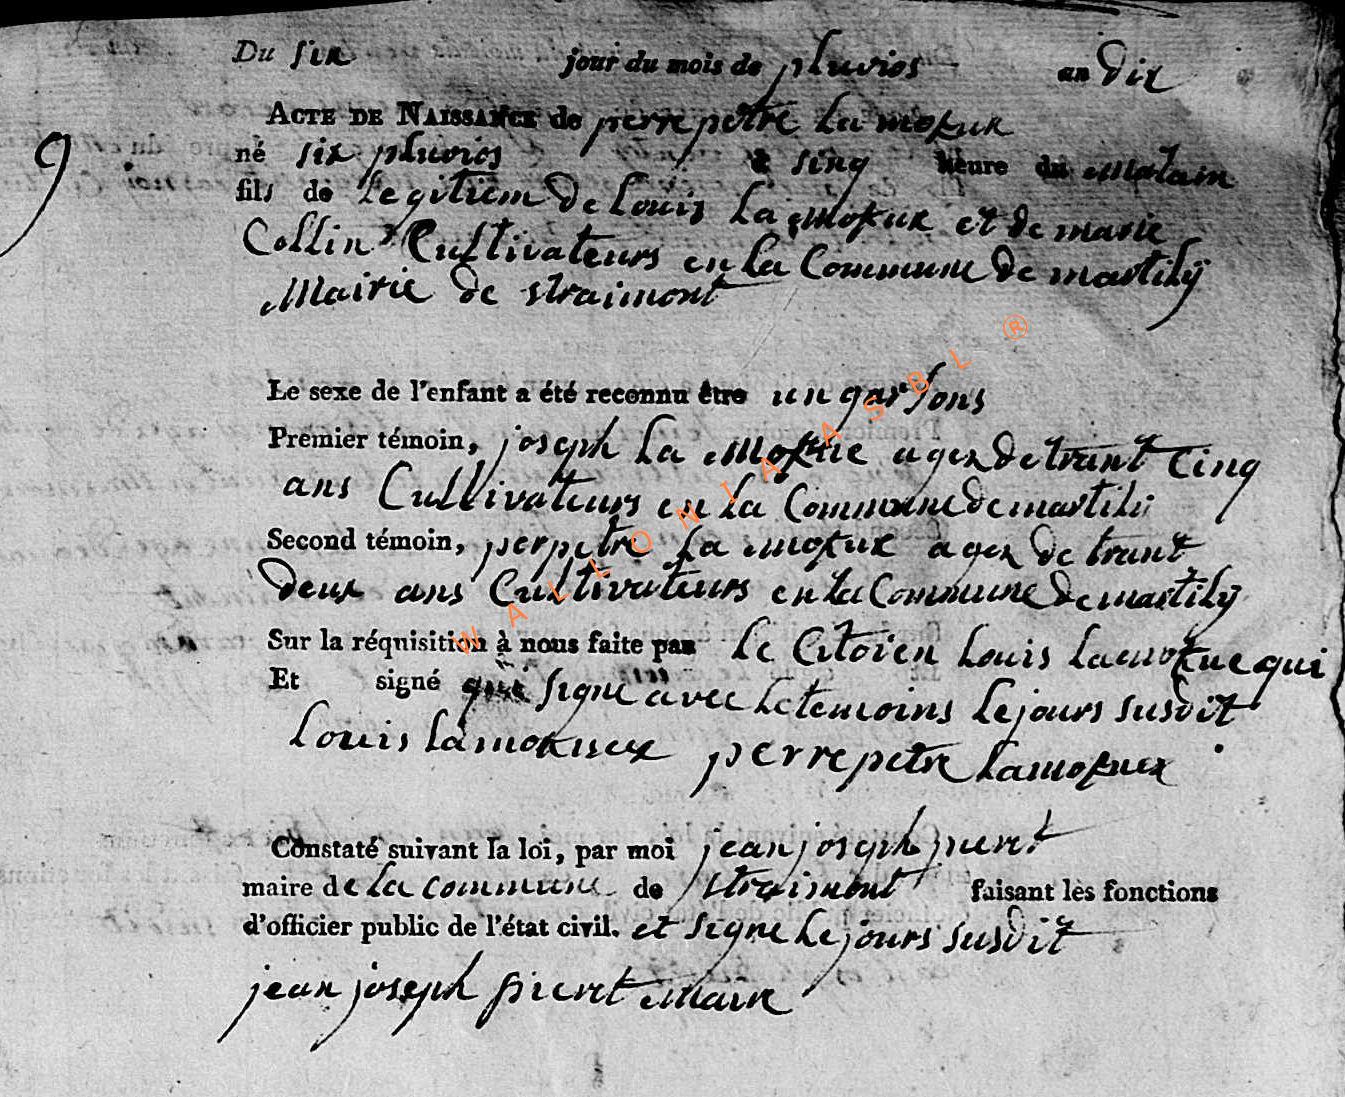 Du six jour du mois de pluvios an dix
ACTE DE NAISSANCE de perrepetre La mokux
9
né six pluvios à sinq heure du matain
fils de legitiem de Louis La mokux et de marie
Collin Cultivateurs en La Commune de martilÿ
Mairie de straimont
Le sexe de l'enfant a été reconnu être un garsons
Premier témoin, joseph La mokue agez de trant Cinq
ans Cultivateurs en La Commune de martili
Second témoin, perpetre La mokux agez de trant
deux ans Cultivateurs en La Commune de martilÿ
Sur la réquisition à nous faite par Le Citoien Louis Lamokue qui
Et signé signe avec Le temoins Le jours susdit
Louis Lamokuex perrepetre Lamokuex
Constaté suivant la loi, par moi jean joseph pieret
maire de La commune de straimont faisant les fonctions
d'officier public de l'état civil. et signe Le jours susdit
jean joseph pieret maire
WALLONIA ASBL ®